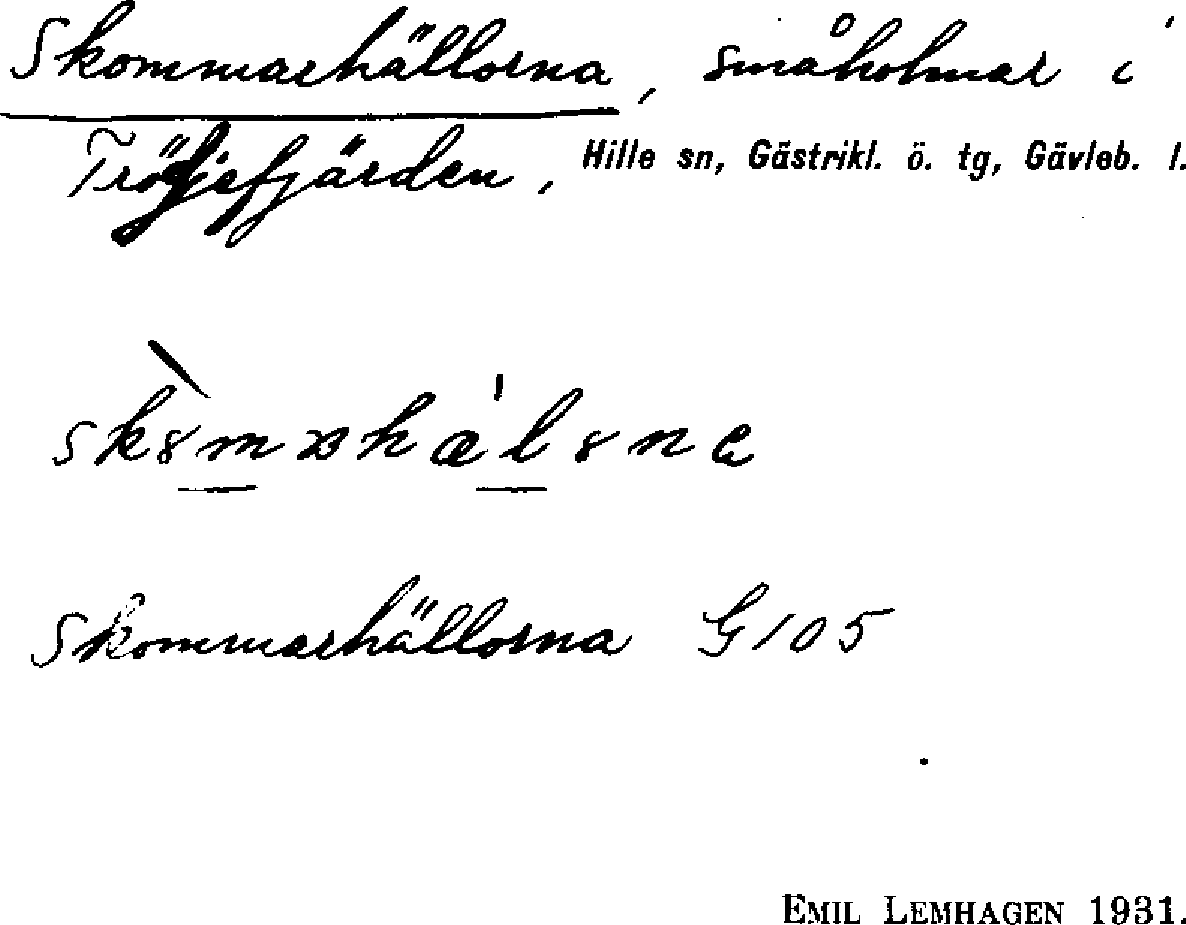 Skommarhällorna, småholmar i
Trödjefjärden, Hille sn, Gästrikl. ö. tg, Gävleb. l.
Skommarhällorna G 105
EMIL LEMHAGEN 1931.